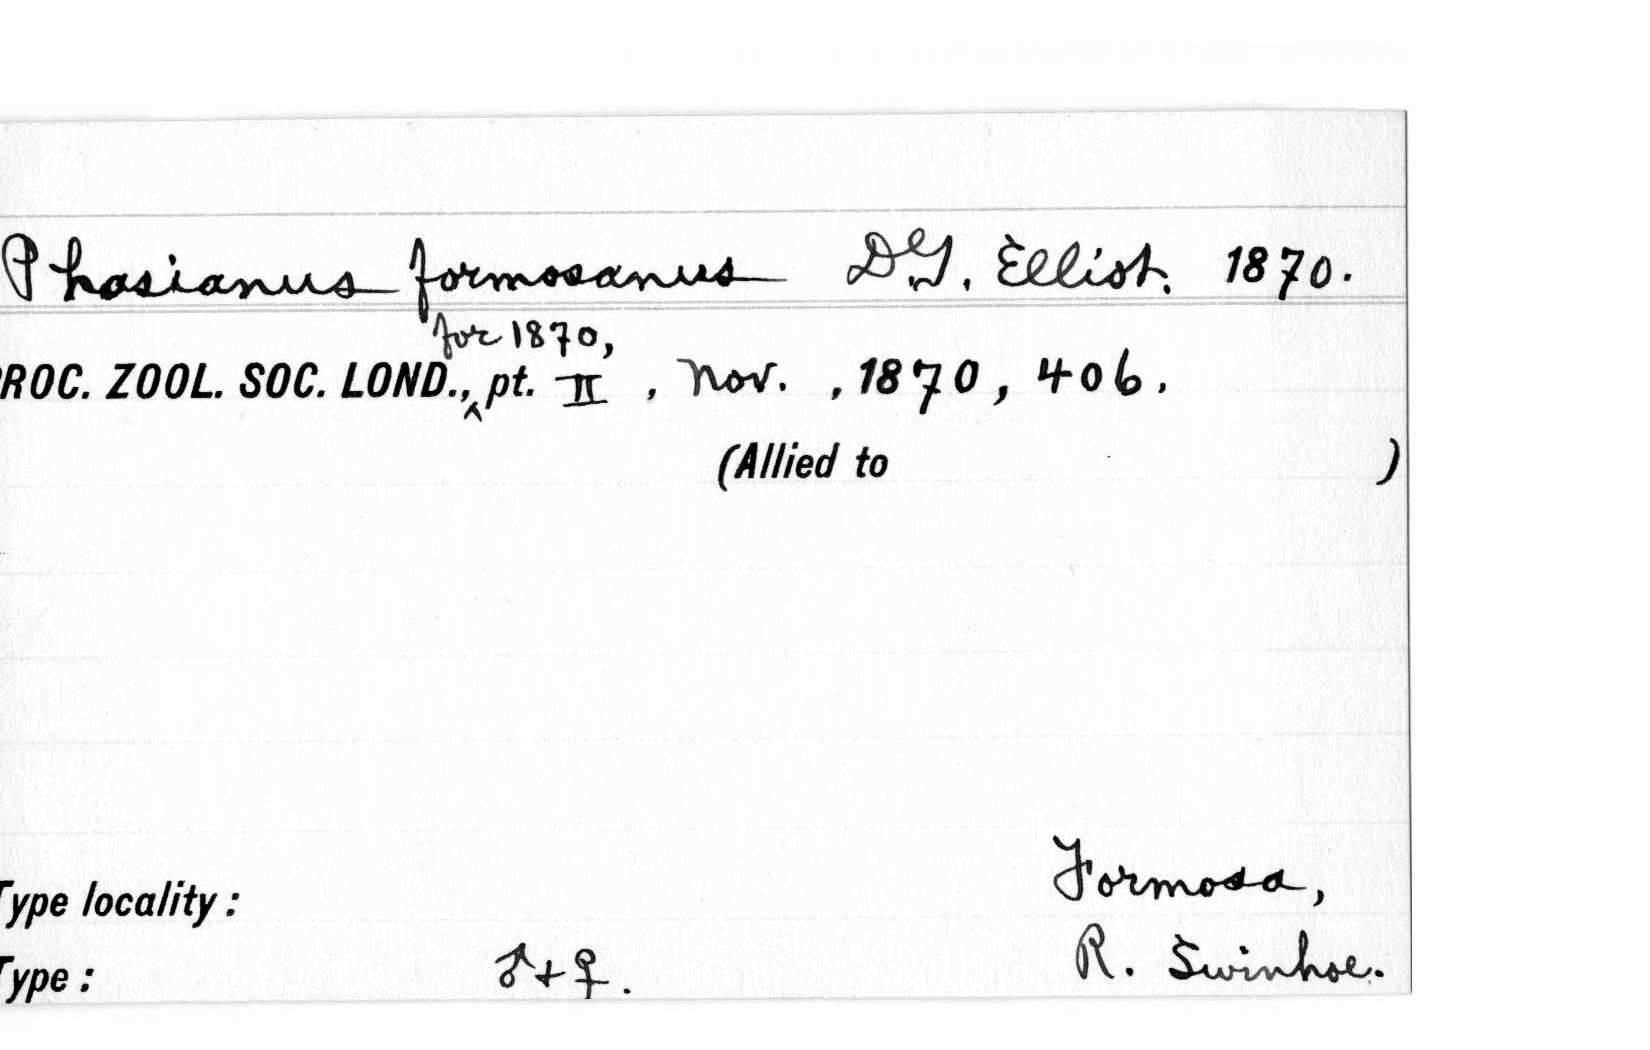 Phasianus formosanus D.G. Elliot. 1870.
for 1870,
PROC. ZOOL. SOC. LOND., ^ pt. II , Nov. , 1870, 406.
(Allied to )
Formosa,
Type locality :
Type : ♂ + ♀ . R. Swinhoe.